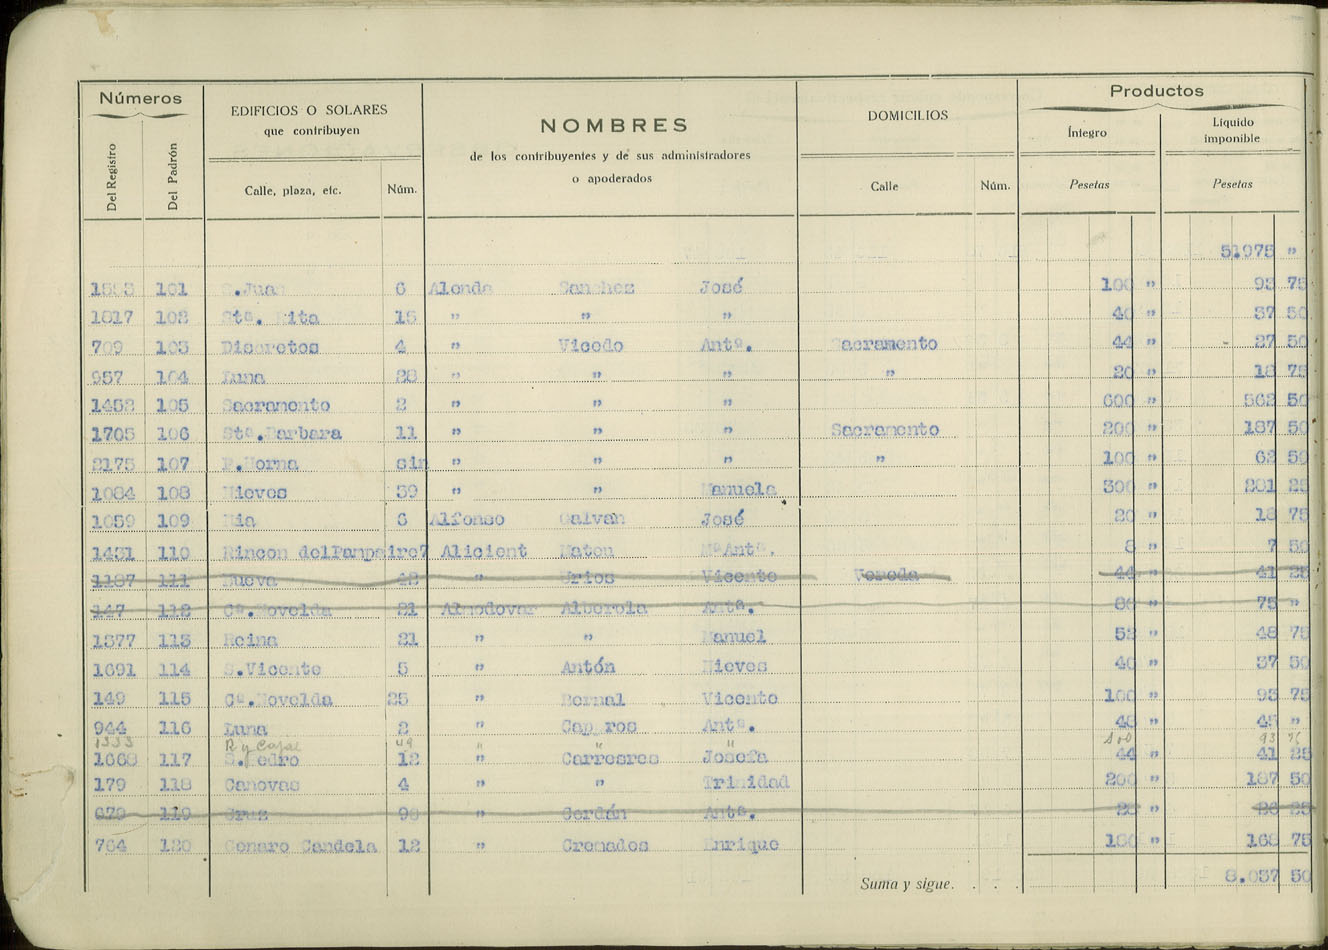 Números
EDIFICIOS O SOLARES
que contribuyen
NOMBRES
de los contribuyentes y de sus administradores
o apoderados
DOMICILIOS
Productos
Íntegro
Líquido
imponible
Del Registro
Del Padrón
Calle, plaza, etc.
Núm.
Calle
Núm.
Pesetas
Pesetas
51975 "
101 S.Juan 6 Alonda Sanchez José 100 " 93 75
1817 102 Stª. Rita 15 " " " 40 " 37 50
709 103 Discretos 4 " Vicedo Antº. Sacramento 44 " 27 50
957 104 Luna 28 " " " " 20 " 18 75
1452 105 Sacramento 2 " " " 600 " 562 50
1705 106 Stª.Barbara 11 " " " Sacramento 200 " 187 50
2175 107 P.Horna sin " " " " 100 " 62 50
1084 108 Nieves 59 " " Manuela 300 " 281 25
1059 109 6 Alfonso Galvan José 20 " 18 75
1431 110 Rincon del 7 Alicient Mateu MªAntª. 8 " 7 50
1187 111 Nueva 48 " Urios Vicente Vereda 44 " 41 25
147 112 Cª.Novelda 21 Almodovar Alberola Antª. 80 " 75 "
1377 113 Reina 21 " " Manuel 52 " 48 75
1691 114 S.Vicente 5 " Antón Nieves 40 " 37 50
149 115 Cª.Novelda 25 " Bernal Vicente 100 " 93 75
944 116 Luna 2 " Antª. 48 " 45 "
1333 R y Cajal 49 " " " 100 93 75
1668 117 S.Pedro 12 " Carreres Josefa 44 " 41 25
179 118 Canovas 4 " " Trinidad 200 " 187 50
679 119 Cruz 90 " Cerdán Antª. 28 " 26 25
764 120 Genaro Candela 12 " Cremades Enrique 180 " 168 75
Suma y sigue. . . . 8.037 50